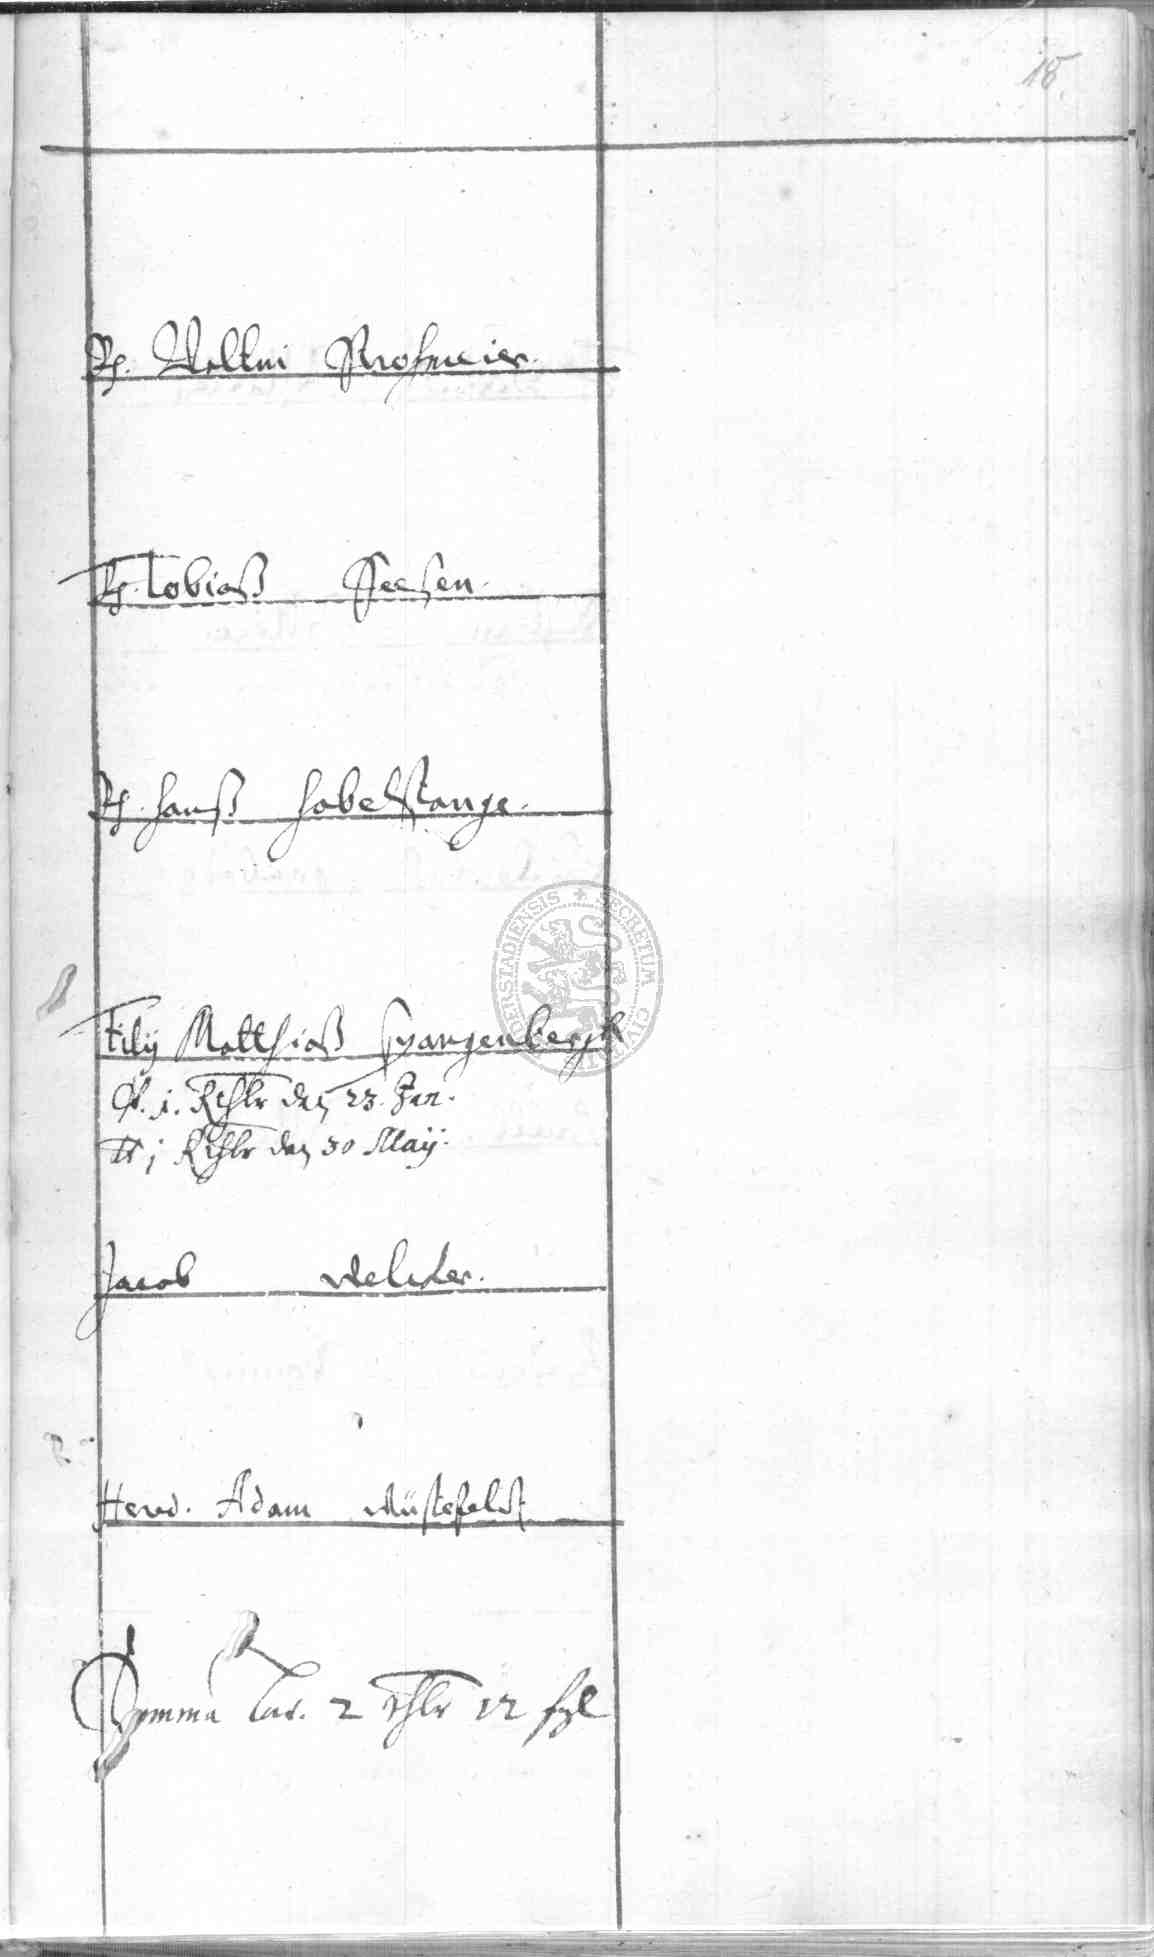 18.
Rh. Valtin Strohmeier.
Rh. Tobiaß Seesen.
Rh. Hanß Habelstange.
Filij Matthiaß Spangenbergk
dt. 1. Rthlr den 23. Jan.
dt j Rthlr den 30 Maij.
Jacob Welcker.
Hered. Adam Wüstefeldt
Summa lat. 2 thlr 12 sgl
SECRETUM CIVITATIS DUDERSTADIENSIS